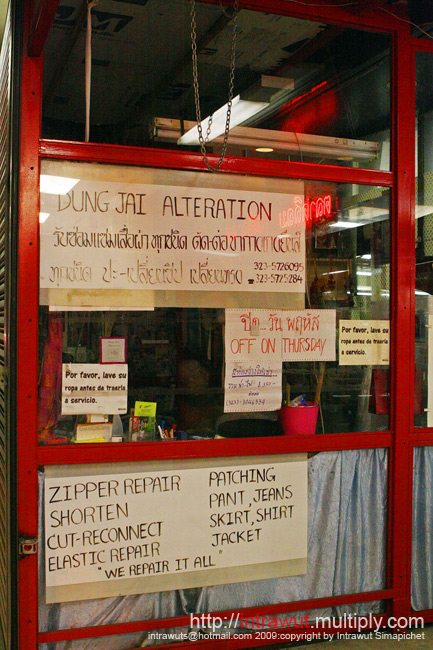 DUNG JAI ALTERATION
รับซ่อมแซมเสื้อผ้า ทุกชนิด ตัด-ต่อ ขากางเกงยีนส์
ทุกชนิด ปะ-เปลี่ยนซิป เปลี่ยนทรง
323-5726095
☎323-5725284
ปิด..วัน พฤหัส
OFF ON THURSDAY
Por favor, lave su
ropa antes de traerla
a servicio.
Por favor, lave su
ropa antes de traerla
a servicio.
ZIPPER REPAIR
SHORTEN
CUT-RECONNECT
ELASTIC REPAIR
PATCHING
PANT, JEANS
SKIRT, SHIRT
JACKET
"WE REPAIR IT ALL"
http://intrawut.multiply.com
intrawuts@hotmail.com 2009:copyright by Intrawut Simapichet